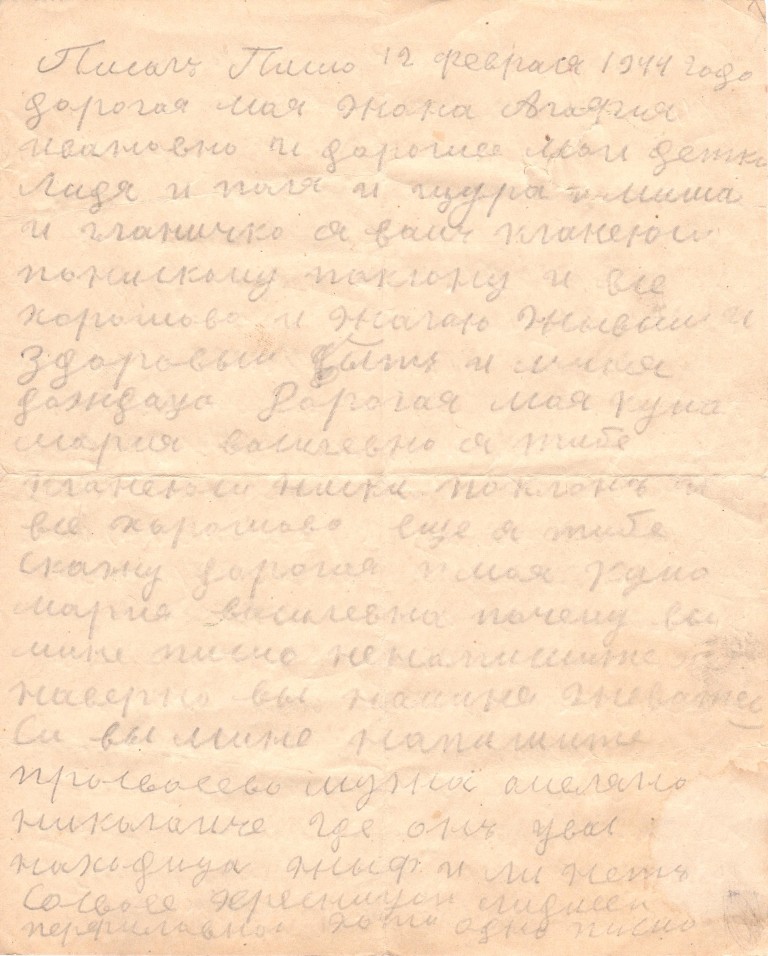 Писать Писмо 12 февраля 1944 года
дорогая моя жона Агафия
ивановно и дорогие мои детки
Лидя и поля и щура и миша
и гланичко я вам кланеюси
понискому поклону и все
хорошова и жалаю жывыи и
здоровыи быть и миня
дождаца Дорогая моя кума
мария васичевно я тибе
кланеюси ниски поклонъ и
все хорошово еще я тибе
скажу дорогая моя кума
мария василевна почему вы
мине писмо ненапишите
наверно вы намине гневаите
си вы мине напишите
просвоево мужа омеляно
николаиче где онъ увас
находица жыф и ли нетъ
сосвоее хресницои лидиеи
перфиловнои хоти одно писмо